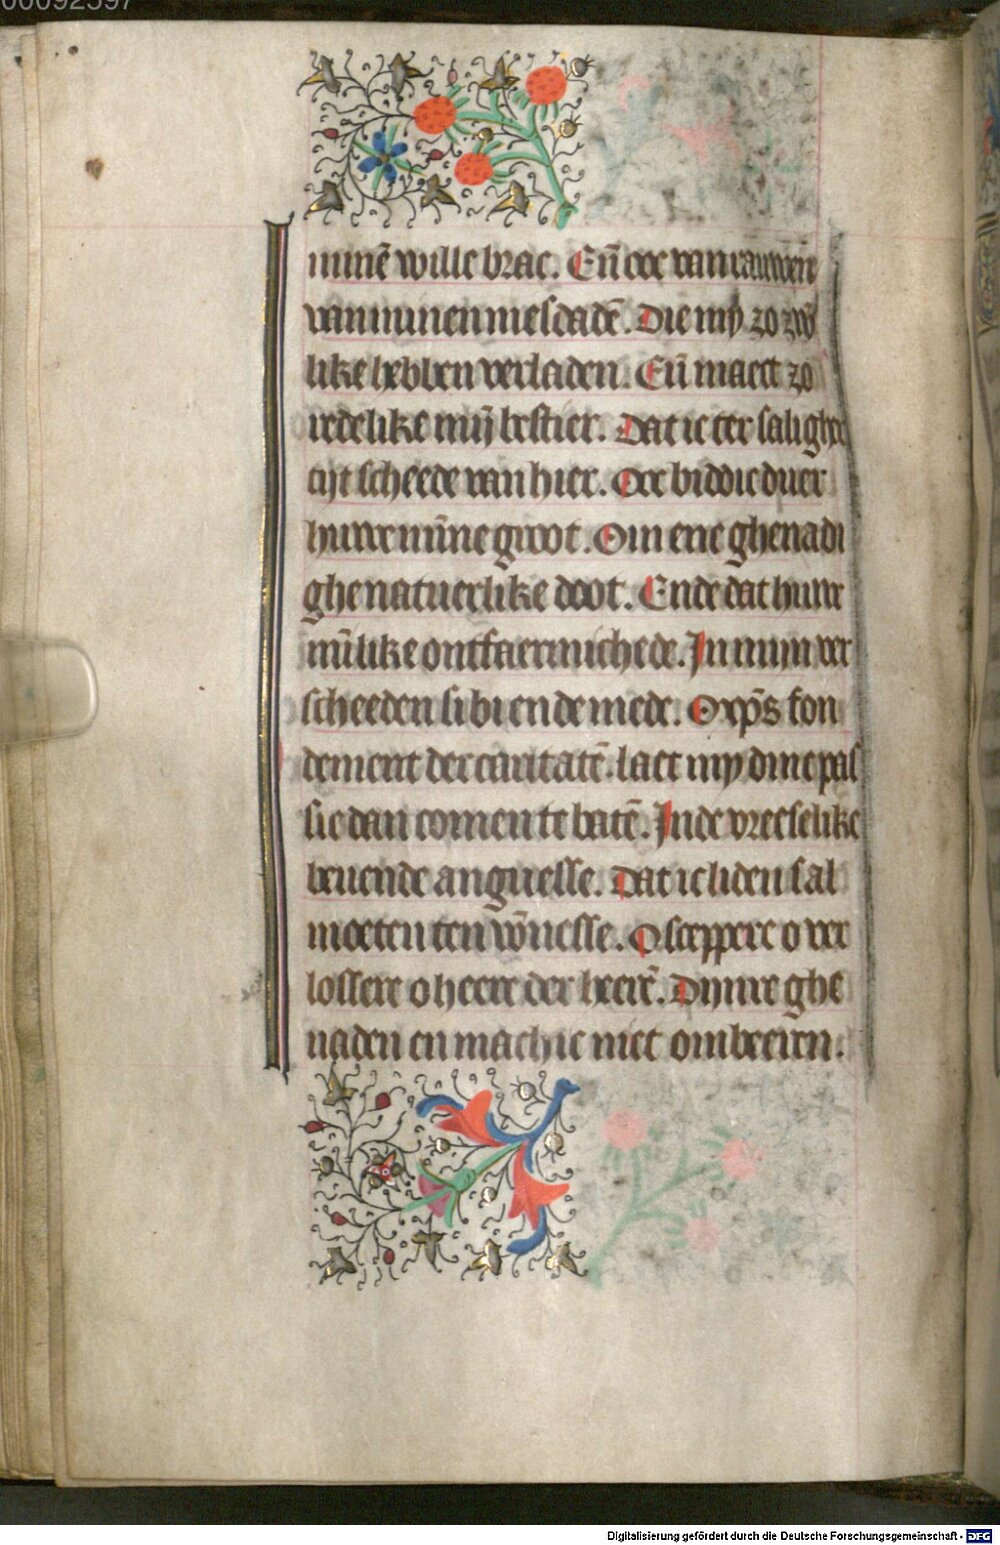 00092597
minē wille brac. Eñ ooc van rauwen
van minen mesdadē. Die my zo zw̄
like hebben verladen. Eñ maect zo
redelike mijn bestier. Dat ic ter saligher
tijt scheede van hier. Ooc biddic duer
huwe mīne groot. Om ene ghenadi
ghe natuerlike doot. Ende dat huwe
mīlike ontfaermichede. In mijn ver
scheeden si bi ende mede. O xp̄s fon
dement der caritatē. laet my dine pas
sie dan comen te batē. In de vreeselike
beuende anguesse. Dat ic liden sal
moeten ten vō̄nesse. O sceppere o ver
lossere o heere der heerē. Dijnre ghe
naden en machic niet ombeeren.
Digitalisierung gefördert durch die Deutsche Forschungsgemeinschaft - DFG